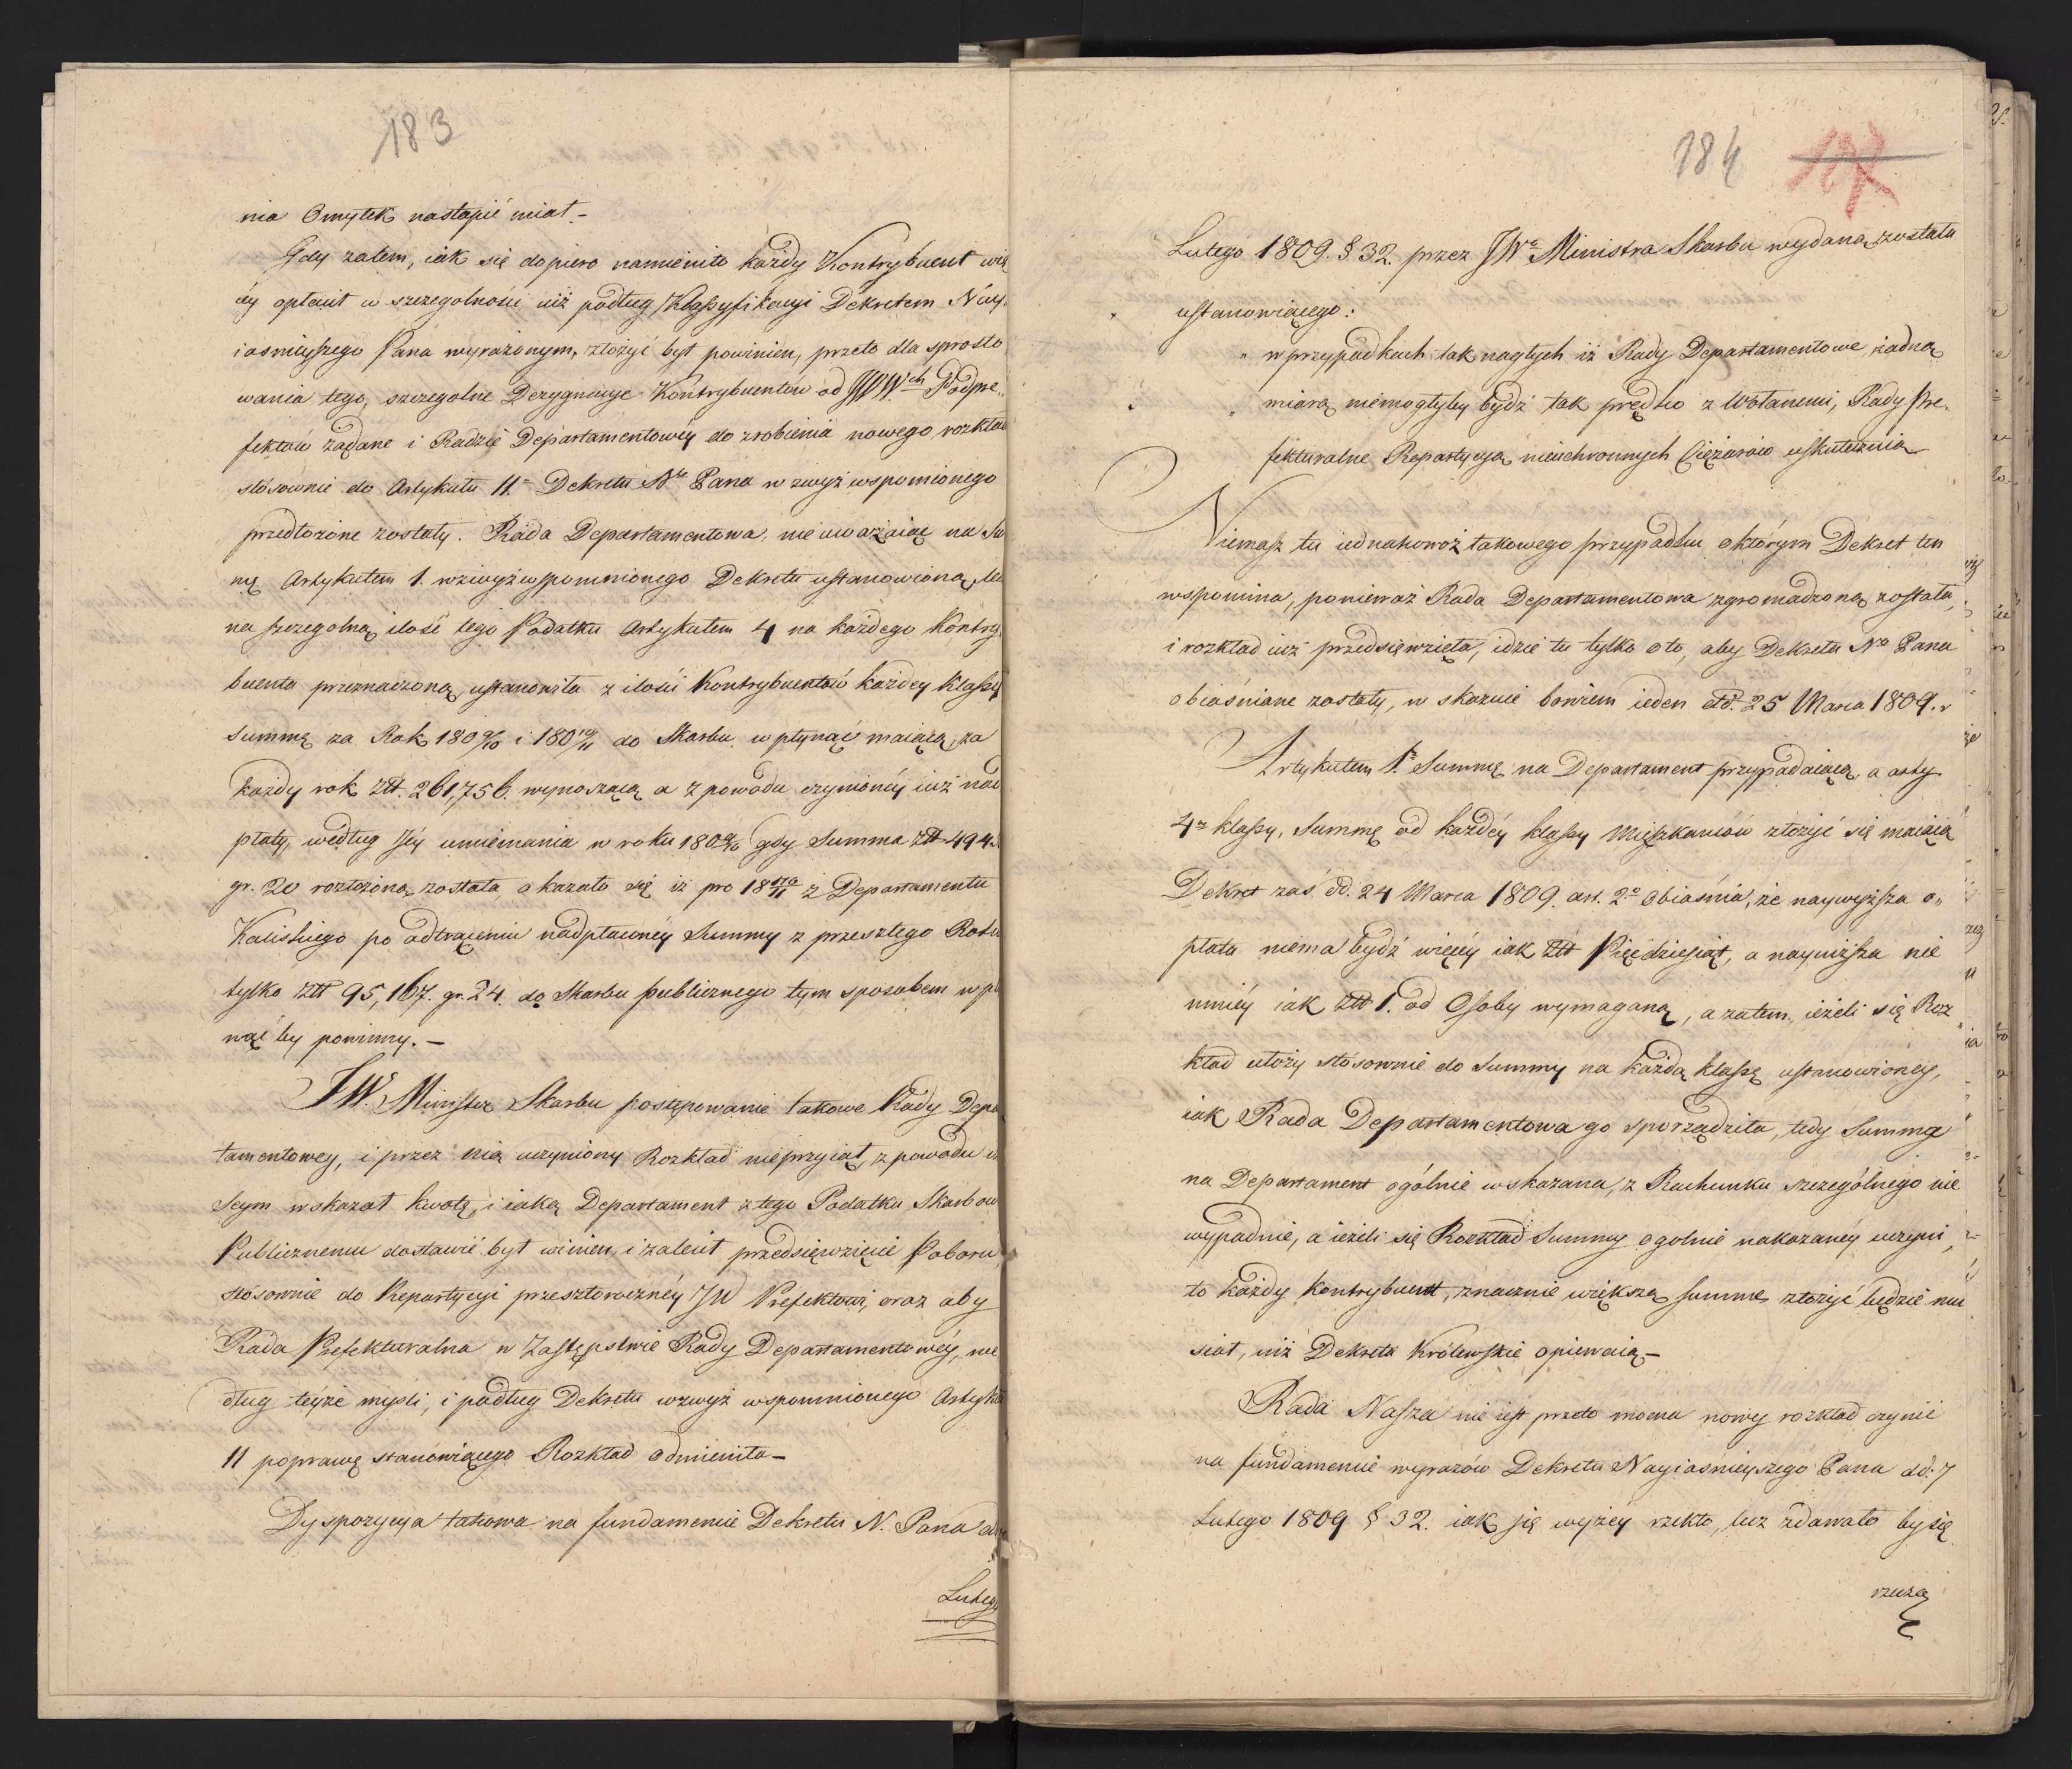 183
nia Omyłek nastąpić miał –
Gdy zatem, iak się dopiero namieniło każdy Kontrybuent wię
cey opłacił w szczegolności niż podług Klassyfikacyi Dekretem Nay,
iaśnieyszego Pana wyrażonym, złożyć był powinien, przeto dla sprosto
wania tego, szczegolne Dezygnacye Kontrybuentów od JWWch Podpre„
fektów żądane i Radzie Departamentowéy do zrobienia nowego rozkła
stósownie do Artykułu 11o Dekretu No Pana w zwyż wspomionego
przedłożone zostały. Rada Departamentowa, nie uważaiąc na Su
mę Artykułem 1. wzwyż wspomnionego Dekretu ustanowioną,
na szczegolną ilość tego Podatku Artykułem 4 na każdego Kontry,
buenta przeznaczoną, ustanowiła z ilości Kontrybuentów każdey Klassy
Summę za Rok 1809/10 i 1810/11 do Skarbu wpłynąć maiącą, za
każdy rok Złł. 261,756. wynoszącą a z powodu czynionéy iuż nad
płaty, według Jéy umiemania w roku 1809/10 gdy Summa Złł 494
gr. 20 rozłożoną została, okazało się iż pro 1810/11 z Departamentu
Kaliskiego po odtrąceniu nadpłaconéy Summy z przeszłego Roku
tylko Złł 95,167. gr. 24. do Skarbu publicznego tym sposobem wpł
nąć by powinny. –
JW. Minister Skarbu postępowanie takowe Rady Depa
tamentowey, i przez nią uczyniony Rozkład nieprzyiął, z powodu iż
Seym wskazał kwotę, iaką Departament z tego Podatku Skarbow
Publicznemu dostawić był winien, i zalecił przedsięwzięcie Poboru
stósownie do Repartycyi przeszłorocznéy JW Prefektowi, oraz aby
Rada Prefekturalna w Zastępstwie Rady Departamentowéy, we
dług teyże myśli, i podług Dekretu wzwyż wspomnionego Artyku
11 poprawę stanowiącego Rozkład odmieniła –
Dyspozycya takowa na fundamencie Dekretu N. Pana
Lutego
184
Lutego 1809. § 32. przez JWo Ministra Skarbu wydaną została
ustanowiącego:
„ w przypadkach tak nagłych iż Rady Departamentowe, żadną
„ miarą niemogłyby bydź tak prędko z wołanemi, Rady Pre„
fekturalne Repartycyą nieuchronnych Ciężarów uskutecznią
Niemasz tu iednakowoż takowego przypadku o którym Dekret ten
wspomina, ponieważ Rada Departamentowa zgromadzoną została,
i rozkład iuż przedsięwzięła, idzie tu tylko o to, aby Dekreta No Pana
obiaśniane zostały, w skazuie bowiem ieden dd. 25 Marca 1809. r
Artykułem 1o Summę na Departament przypadaiącą, a arty.
4o klassy, Summę od każdéy klassy Mieszkańców złożyć się maiącą
Dekret zaś dd. 24 Marca 1809. art. 2o obiaśnia, że naywyższa o„
płata niema bydź więcéy iak Złł Pięćdziesiąt, a nayniższa nie
mniéy iak Złł 1. od Osoby wymaganą, a zatem, ieżeli się Roz
kład ułoży stósownie do Summy na każdą klassę ustanowioney,
iak Rada Departamentowa go sporządziła, tedy Summa
na Departament ogólnie wskazana, z Rachunku szczególnego nie
wypadnie, a ieżeli się Rozkład Summy ogolnie nakazanéy uczyni,
to każdy kontrybuent, znacznie większą summę złożyć będzie mu
siał, niż Dekreta Królewskie opiewaią –
Rada Nasza nie iest przeto mocna nowy rozkład czynić
na fundamencie wyrazów Dekretu Nayiaśnieyszego Pana dd. 7
Lutego 1809 § 32. iak się wyżéy rzekło, lecz zdawało by się
rzeczą